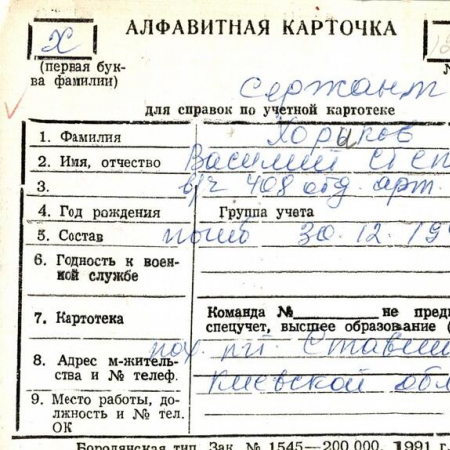 АЛФАВИТНАЯ КАРТОЧКА
Х
(первая бук-
ва фамилии)
сержант
для справок по учетной картотеке
1. Фамилия Хорьков
2. Имя, отчество Василий Степ
3. в/ч 408 отд. арт.
4. Год рождения Группа учета
5. Состав погиб 30.12.19
6. Годность к воен-
ной службе
7. Картотека Команда № не пред
спецучет, высшее образование (
8. Адрес м-житель-
ства и № телеф.
пох. пгт Стави
Киевской обл
9. Место работы, дол-
жность и № тел.
ОК
Бородянская тип. Зак. № 1545—200 000. 1991 г.